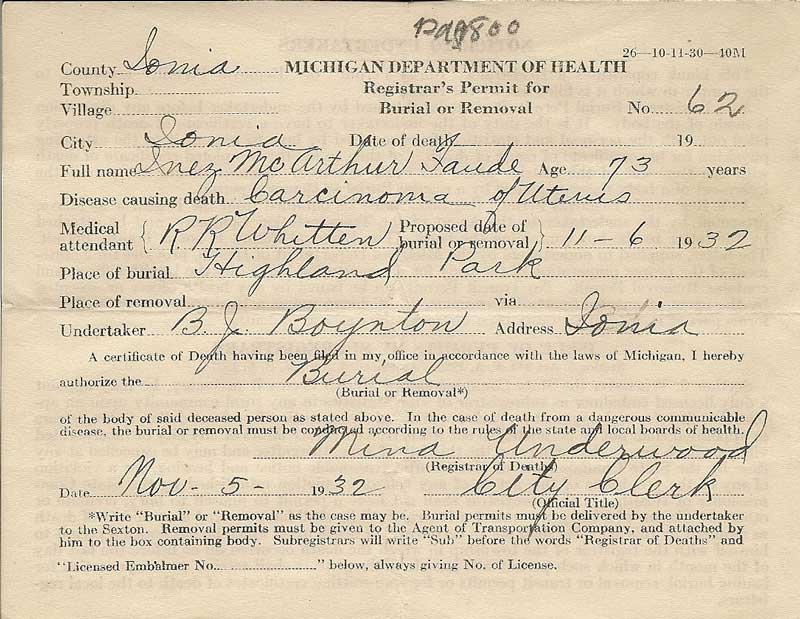 26—10-11-30—40M
County Ionia MICHIGAN DEPARTMENT OF HEALTH
Township Registrar's Permit for
Village Burial or Removal No. 62
City Ionia Date of death 19
Full name Inez McArthur Faude Age 73 years
Disease causing death Carcinoma of Uterus
Medical attendant { R R Whitten Proposed date of burial or removal } 11-6 1932
Place of burial Highland Park
Place of removal via
Undertaker B. J. Boynton Address Ionia
A certificate of Death having been filed in my office in accordance with the laws of Michigan, I hereby
authorize the Burial
(Burial or Removal*)
of the body of said deceased person as stated above. In the case of death from a dangerous communicable
disease, the burial or removal must be conducted according to the rules of the state and local boards of health.
Mina Underwood
(Registrar of Deaths)
Date Nov-5- 1932 City Clerk
(Official Title)
*Write "Burial" or "Removal" as the case may be. Burial permits must be delivered by the undertaker
to the Sexton. Removal permits must be given to the Agent of Transportation Company, and attached by
him to the box containing body. Subregistrars will write "Sub" before the words "Registrar of Deaths" and
"Licensed Embalmer No. " below, always giving No. of License.